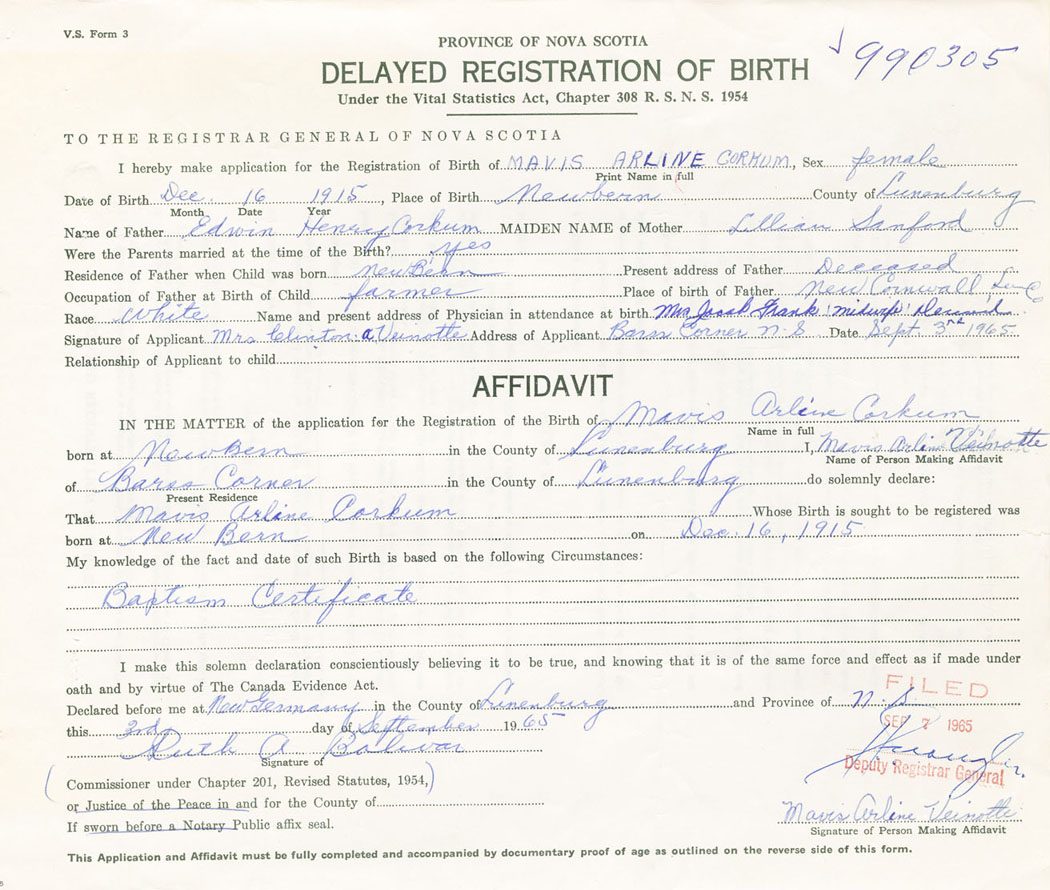 V.S. Form 3
PROVINCE OF NOVA SCOTIA
990305
DELAYED REGISTRATION OF BIRTH
Under the Vital Statistics Act, Chapter 308 R. S. N. S. 1954
TO THE REGISTRAR GENERAL OF NOVA SCOTIA
I hereby make application for the Registration of Birth of MAVIS ARLINE CORKUM, Sex female
Print Name in full
Date of Birth Dec. 16 1915, Place of Birth Newbern County of Lunenburg
Month Date Year
Name of Father Edwin Henry Corkum MAIDEN NAME of Mother Lillian Sanford
Were the Parents married at the time of the Birth? yes
Residence of Father when Child was born New Bern Present address of Father Deceased
Occupation of Father at Birth of Child farmer Place of birth of Father New Cornwall, Lun Co
Race White Name and present address of Physician in attendance at birth Mrs Jacob Frank (midwife) Deceased
Signature of Applicant Mrs Clinton a Veinotte Address of Applicant Barss Corner N.S Date Sept 3rd 1965
Relationship of Applicant to child
AFFIDAVIT
IN THE MATTER of the application for the Registration of the Birth of Mavis Arline Corkum
Name in full
born at New Bern in the County of Lunenburg I, Mavis Arline Veinotte
Name of Person Making Affidavit
of Barss Corner in the County of Lunenburg do solemnly declare:
Present Residence
That Mavis Arline Corkum Whose Birth is sought to be registered was
born at New Bern on Dec. 16, 1915
My knowledge of the fact and date of such Birth is based on the following Circumstances:
Baptism Certificate
I make this solemn declaration conscientiously believing it to be true, and knowing that it is of the same force and effect as if made under
oath and by virtue of The Canada Evidence Act.
FILED
Declared before me at New Germany in the County of Lunenburg and Province of N.S.
this 3rd day of September 1965
SEP 7 1965
Ruth A Bolivar
Signature of
Deputy Registrar General
Commissioner under Chapter 201, Revised Statutes, 1954,
or Justice of the Peace in and for the County of
Mavis Arline Veinotte
If sworn before a Notary Public affix seal.
Signature of Person Making Affidavit
This Application and Affidavit must be fully completed and accompanied by documentary proof of age as outlined on the reverse side of this form.